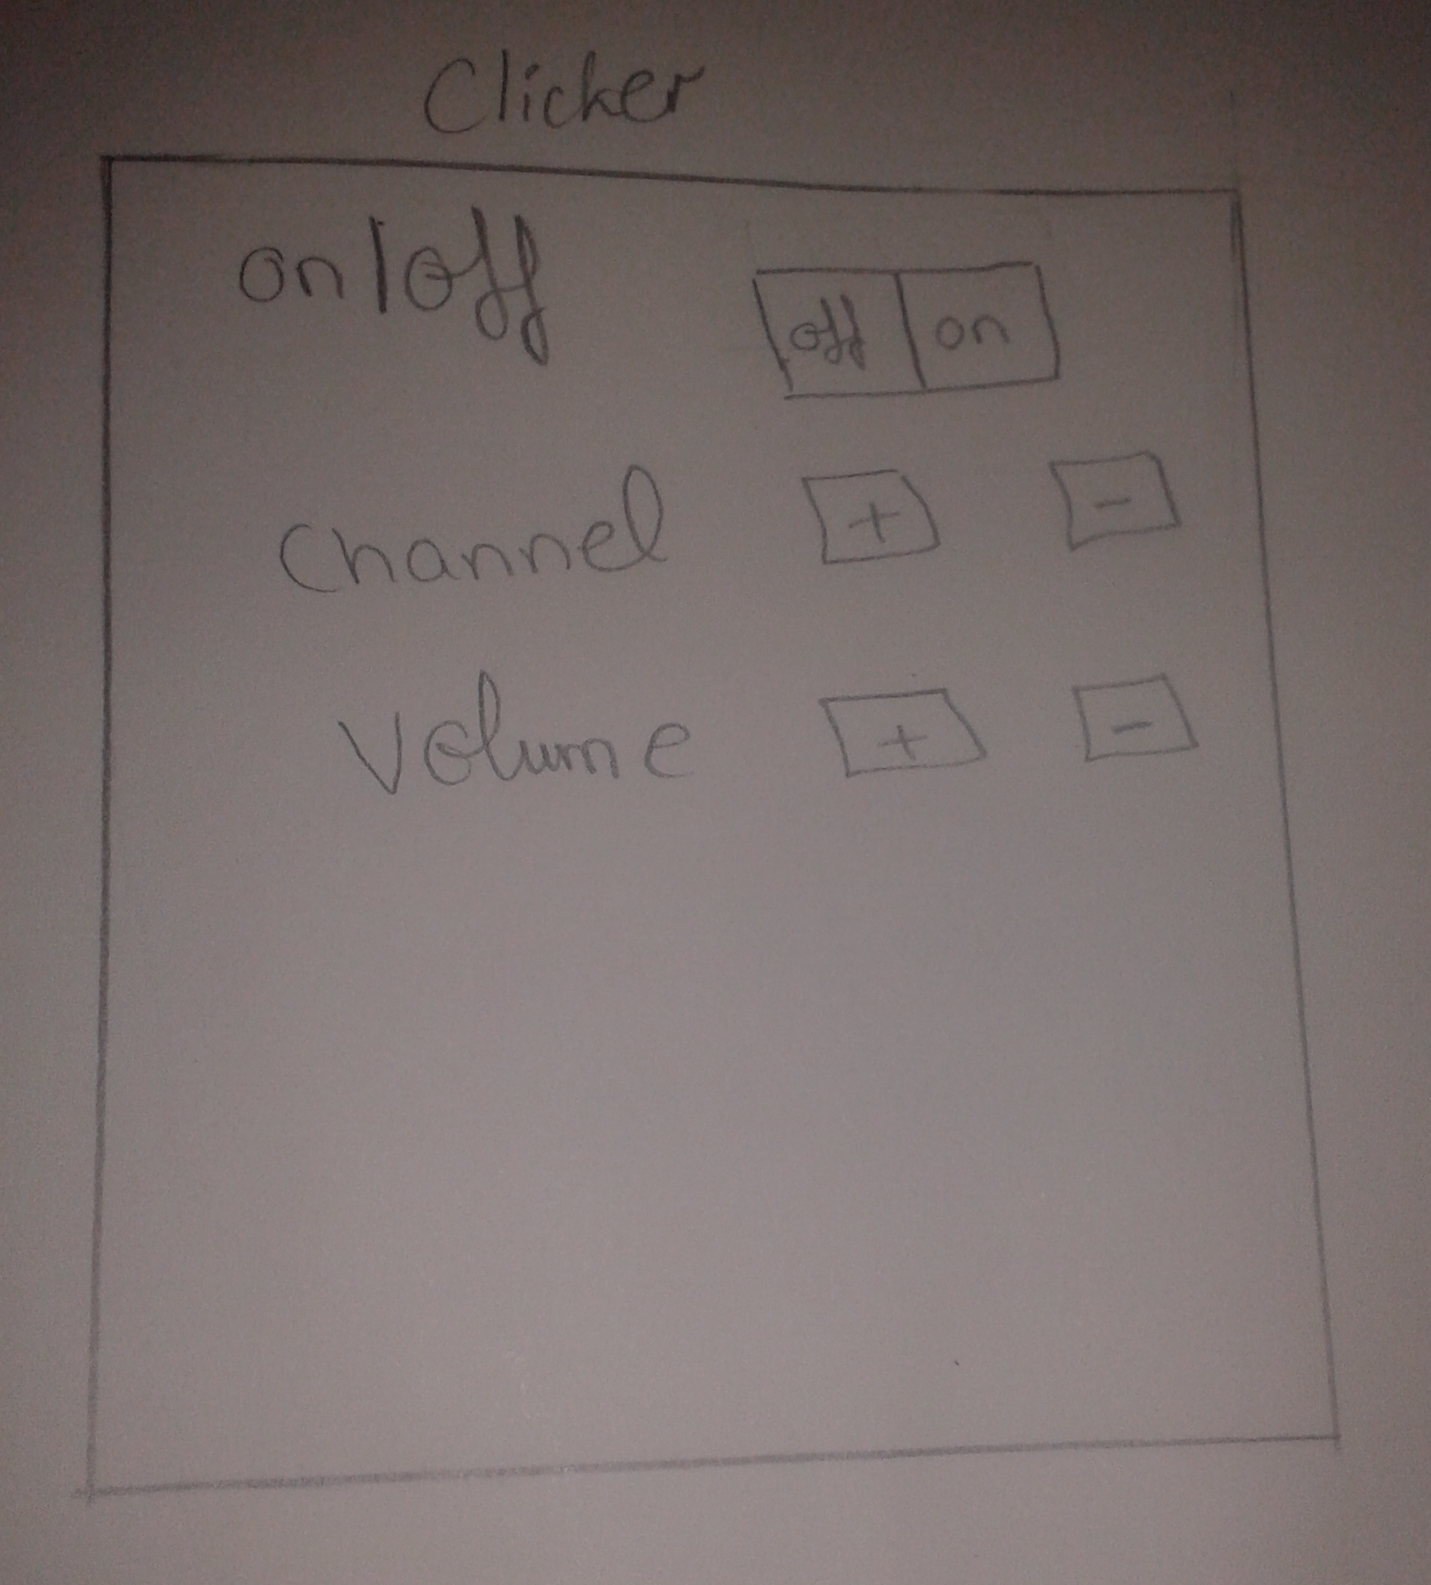 Clicker
on/off off on
Channel + -
Volume + -